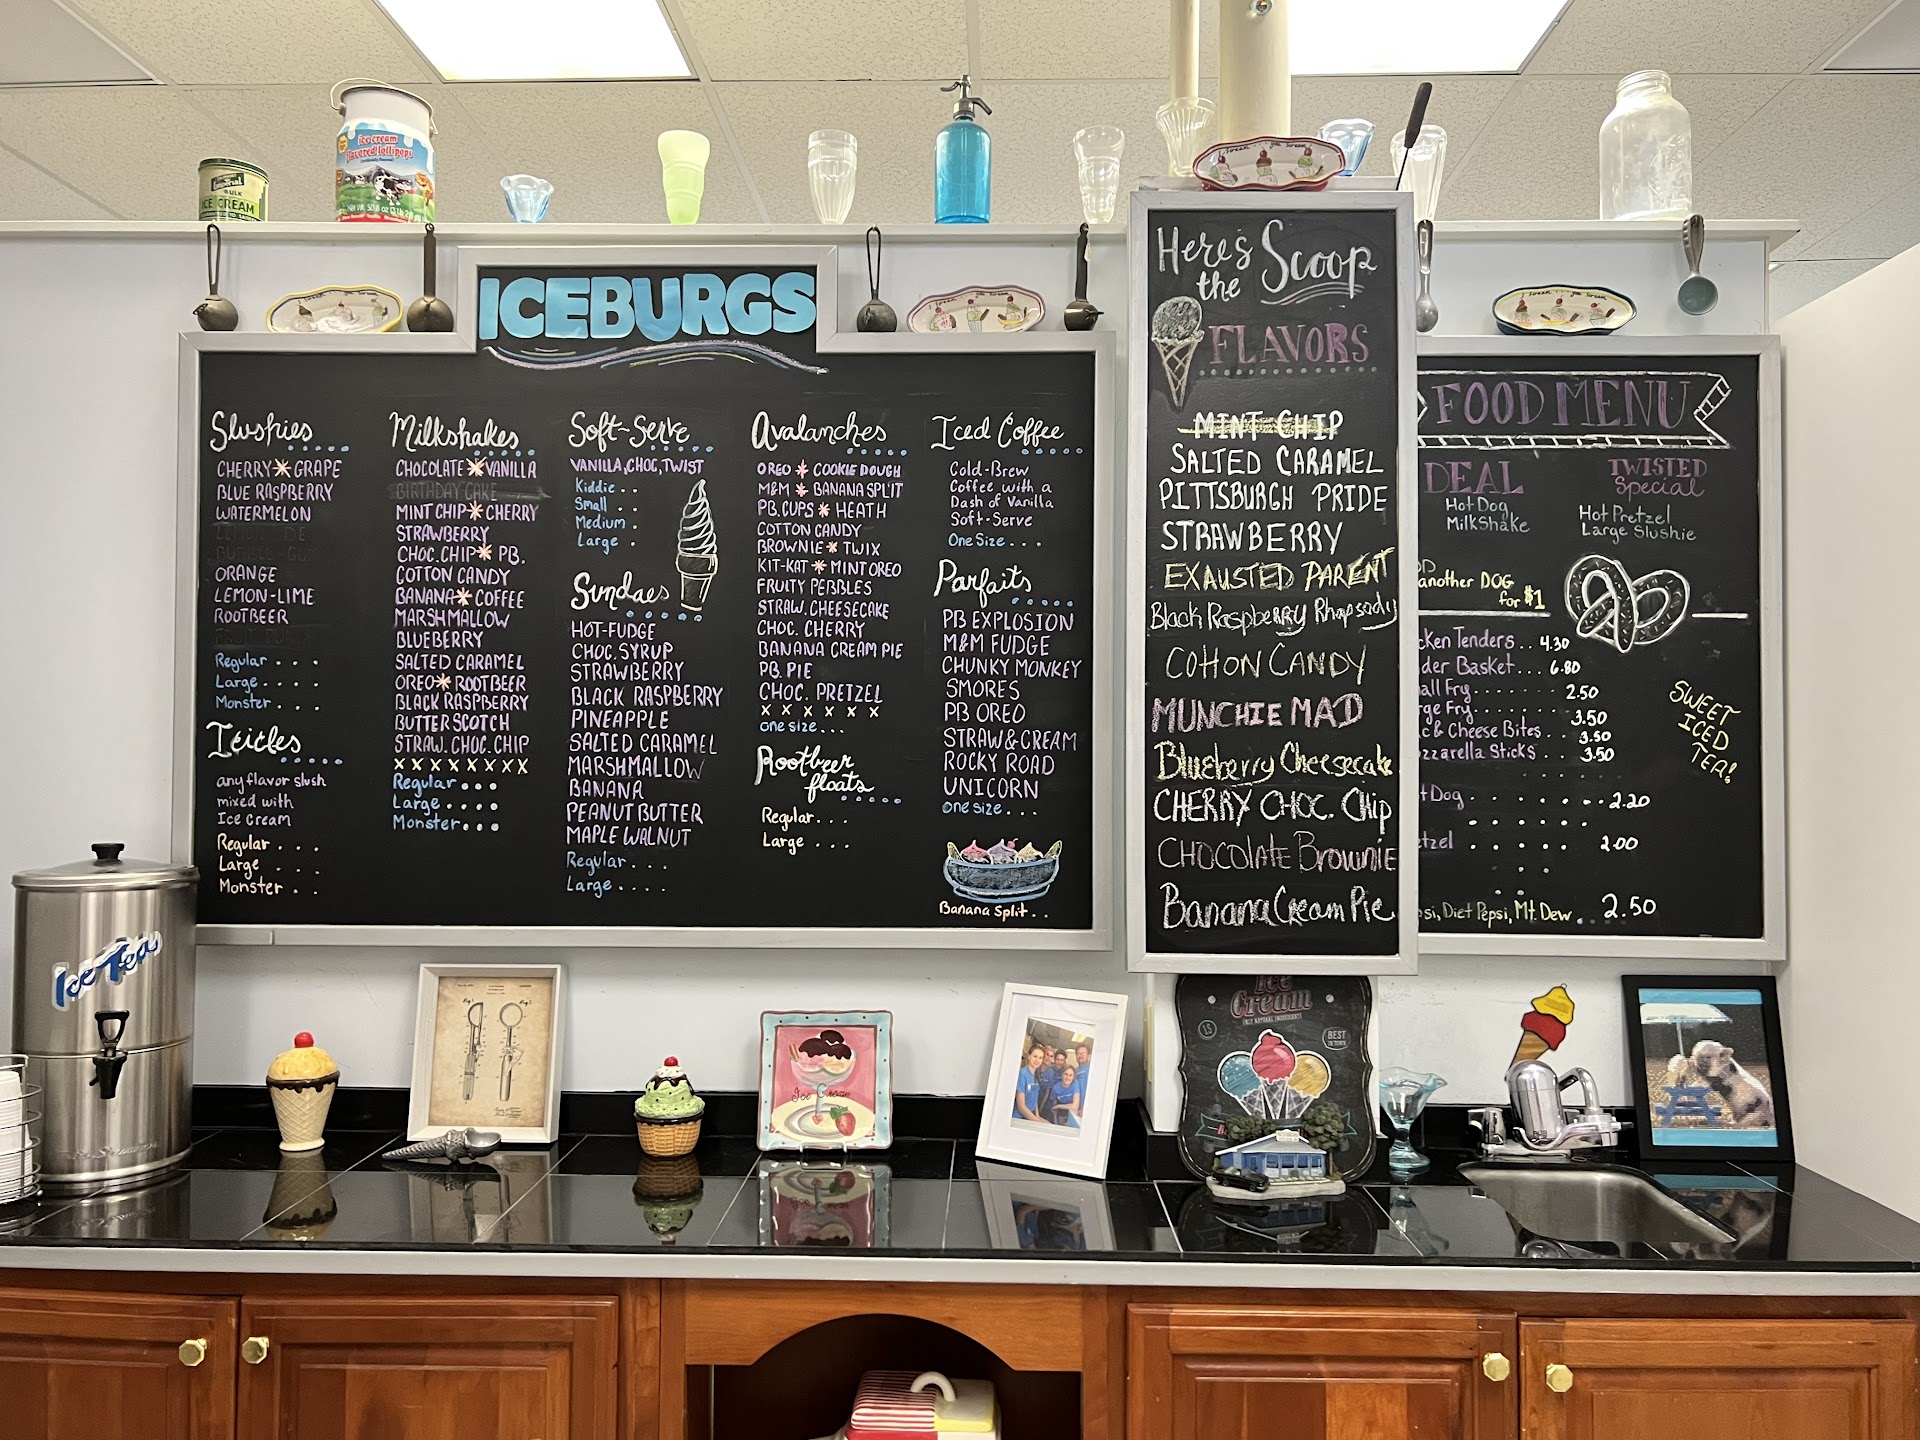 ICEBURGS
Slushies
CHERRY * GRAPE
BLUE RASPBERRY
WATERMELON
BUBBLE-GUM
ORANGE
LEMON-LIME
ROOTBEER
Regular . . .
Large . . . .
Monster . . .
Icicles
any flavor slush
mixed with
Ice Cream
Regular . . .
Large . . .
Monster . . .
Milkshakes
CHOCOLATE * VANILLA
BIRTHDAY CAKE
MINT CHIP * CHERRY
STRAWBERRY
CHOC. CHIP * PB.
COTTON CANDY
BANANA * COFFEE
MARSHMALLOW
BLUEBERRY
SALTED CARAMEL
OREO * ROOTBEER
BLACK RASPBERRY
BUTTERSCOTCH
STRAW. CHOC. CHIP
x x x x x x x x
Regular . . .
Large . . . .
Monster . . .
Soft-Serve
VANILLA, CHOC, TWIST
Kiddie . .
Small . .
Medium .
Large . .
Sundaes
HOT-FUDGE
CHOC. SYRUP
STRAWBERRY
BLACK RASPBERRY
PINEAPPLE
SALTED CARAMEL
MARSHMALLOW
BANANA
PEANUT BUTTER
MAPLE WALNUT
Regular . . .
Large . . . .
Avalanches
OREO * COOKIE DOUGH
M&M * BANANA SPLIT
PB. CUPS * HEATH
COTTON CANDY
BROWNIE * TWIX
KIT-KAT * MINT OREO
FRUITY PEBBLES
STRAW. CHEESECAKE
CHOC. CHERRY
BANANA CREAM PIE
PB. PIE
CHOC. PRETZEL
x x x x x x
one size . . .
Rootbeer
floats
Regular . . .
Large . . .
Iced Coffee
Cold-Brew
Coffee with a
Dash of Vanilla
Soft-Serve
One Size . . .
Parfaits
PB EXPLOSION
M&M FUDGE
CHUNKY MONKEY
SMORES
PB OREO
STRAW & CREAM
ROCKY ROAD
UNICORN
one size . . .
Banana Split . .
Here's
the Scoop
FLAVORS
MINT CHIP
SALTED CARAMEL
PITTSBURGH PRIDE
STRAWBERRY
EXAUSTED PARENT
Black Raspberry Rhapsody
COttON CANDY
MUNCHIE MAD
Blueberry Cheesecake
CHERRY CHOC. Chip
CHOCOLATE Brownie
Banana Cream Pie
FOOD MENU
DEAL
Hot Dog
MilkShake
TWISTED
Special
Hot Pretzel
Large Slushie
another DOG
for $1
cken Tenders . . 4.30
der Basket . . . 6.80
all Fry . . . . . . 2.50
ge Fry . . . . . . 3.50
c & Cheese Bites . . 3.50
zzarella Sticks . . 3.50
t Dog . . . . . . . 2.20
tzel . . . . . . 2.00
si, Diet Pepsi, Mt. Dew . . 2.50
SWEET
ICED
TEA!
BULK
ICE CREAM
ice cream
flavored lollipops
Ice Teas
Ice Cream
Ice
Cream
ONLY NATURAL INGREDIENTS
BEST
IN TOWN